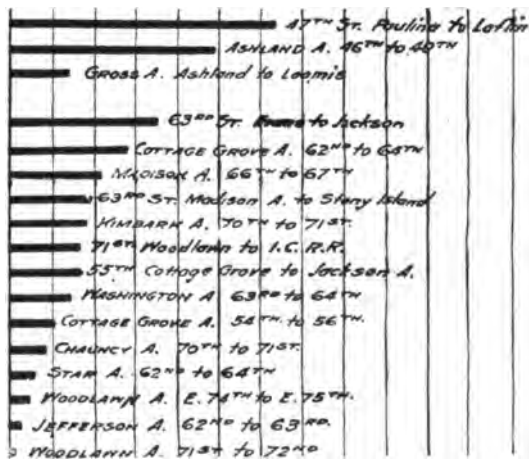 47TH ST. Paulina to Laflin
ASHLAND A. 46TH to 49TH
GROSS A. Ashland to Loomis
63RD ST. to Jackson
COTTAGE GROVE A. 62ND to 65TH
MADISON A. 66TH to 67TH
63RD ST. Madison A. to Stony Island
KIMBARK A. 70TH to 71ST.
71ST. Woodlawn to I.C.R.R.
55TH Cottage Grove to Jackson A.
WASHINGTON A. 63RD to 64TH
COTTAGE GROVE A. 54TH. to 56TH.
CHAUNCY A. 70TH to 71ST.
STAR A. 62ND to 64TH
WOODLAWN A. E. 74TH to E. 75TH.
JEFFERSON A. 62ND to 63RD.
WOODLAWN A. 71ST to 72ND